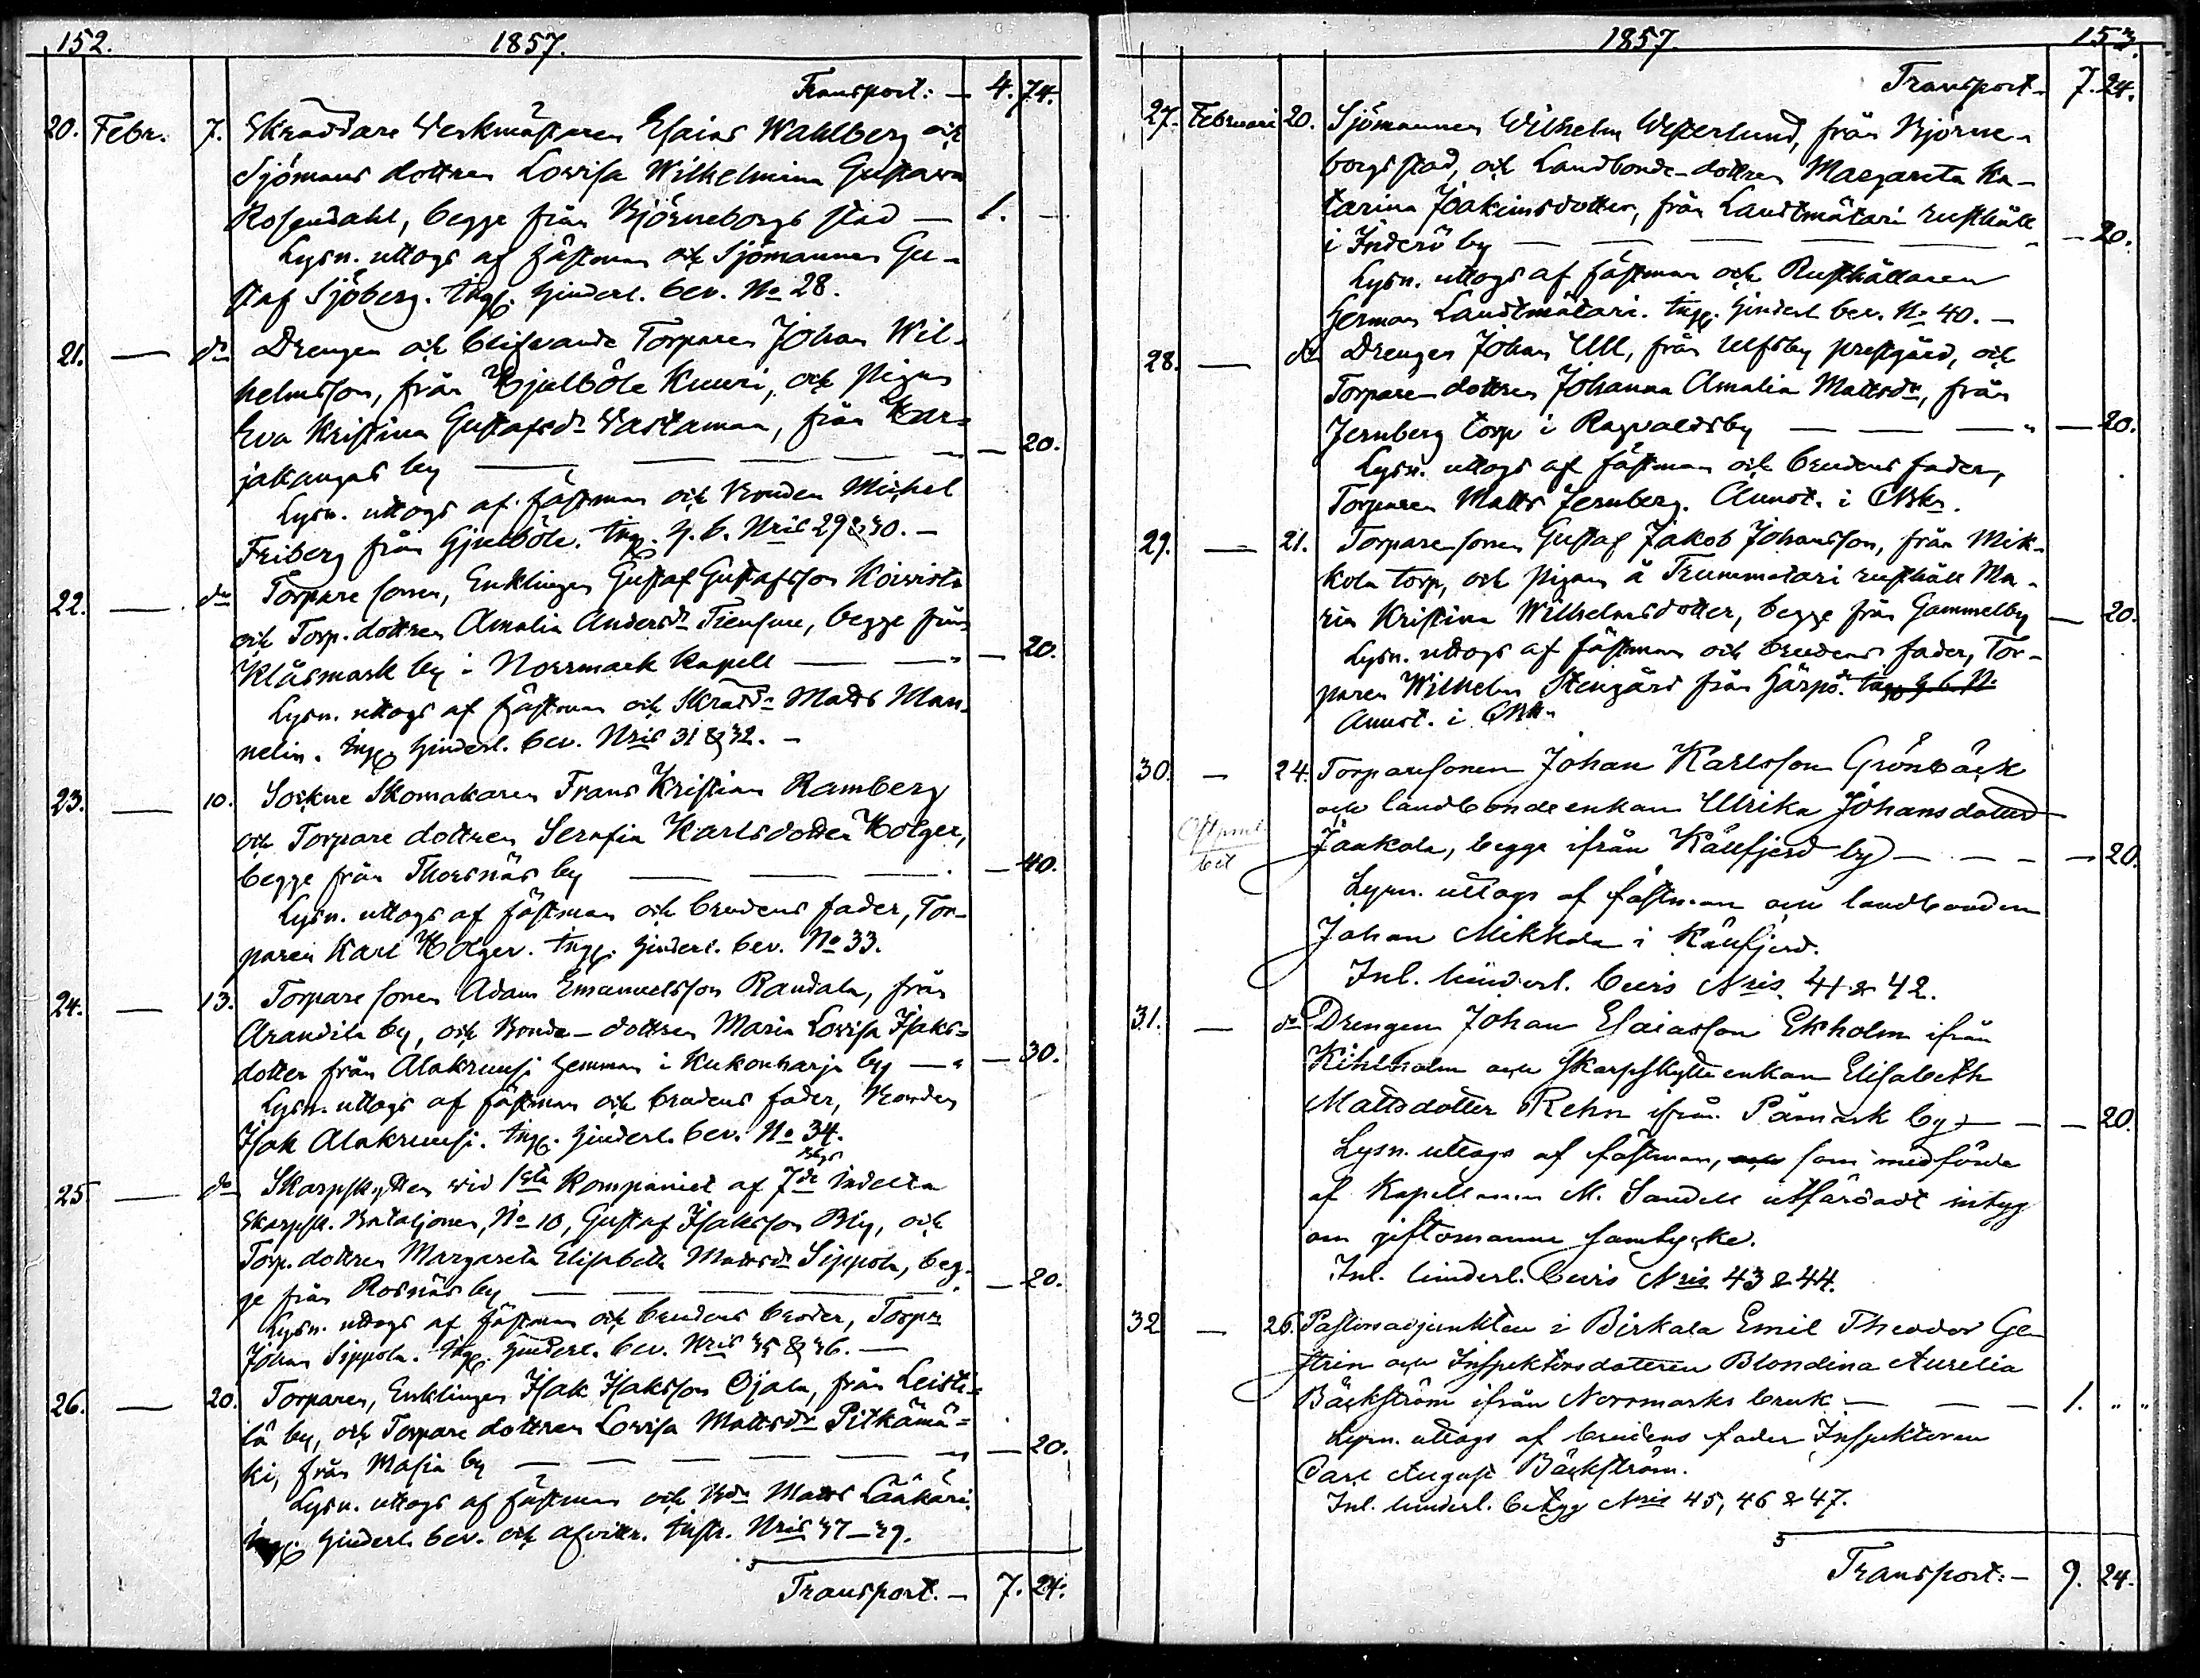 152. 1857.
Transport: — 4. 74.
20. Febr. 7. Skräddare Verkmästaren Esaias Wahlberg och
Sjömans dottren Lovisa Wilhelmina Gustava
Rosendahl, begge från Björneborgs stad — 1. —
Lysn. uttogs af fästman och Sjömannen Gu-
staf Sjöberg. Ingg. hinderl. bev. No 28.
21. — do Drengen och blifvande Torparen Johan Wil-
helmsson, från Hjulböle Kuuri, och Pigan
Eva Kristina Gustafsdr Wastamaa, från Har-
jakangas by — — — — — 20.
Lysn. uttogs af fästman och Bonden Michel
Friberg från Hjulböle. Ingg. h. b. Nris 29 & 30. —
22. — do Torpare sonen, Enklingen Gustaf Gustafsson Koivisto
och Torp. dottren Amalia Andersdr Tiensuu, begge från
Klåsmark by i Norrmark Kapell — — — 20.
Lysn. uttogs af fästman och Skrädd. Matts Man-
nelin. Ingg. hinderl. bev. Nris 31 & 32. —
23. — 10. Sockne Skomakaren Frans Kristian Ramberg
och Torpare dottren Serafia Karlsdotter Holger,
begge från Thorsnäs by — — — — 40.
Lysn. uttogs af fästman och brudens fader, Tor-
paren Karl Holger. Ingg. hinderl. bev. No 33.
24. — 13. Torpare sonen Adam Emanuelsson Randala, från
Arandila by, och Bonde-dottren Maria Lovisa Isaks-
dotter från Alakruusi hemman i Kukonharja by — — 30.
Lysn. uttogs af fästman och brudens fader, Bonden
Isak Alakruusi. Ingg. hinderl. bev. No 34.
25 — do Skarpskytten vid 1sta Kompaniet af 7de Indelta
Skarpsk. Bataljonen, No 10, Gustaf Isaksson Bly, och
Torp. dottren Margareta Elisabeth Mattsdr Sippola, beg-
ge från Rosnäs by — — — — 20.
Lysn. uttogs af fästman och brudens broder, Torpn
Johan Sippola. Ingg. hinderl. bev. Nris 35 & 36. —
26. — 20. Torparen, Enklingen Isak Isaksson Ojala, från Leisti-
lä by, och Torpare dottren Lovisa Mattsdr Pitkämä-
ki, från Masia by — — — — — 20.
Lysn. uttogs af fästman och Bdn Matts Lääkäri.
Ingg. hinderl. bev. och afvittr. instr. Nris 37—39.
Transport. — 7. 24.
1857. 153.
Transport — 7. 24.
27. Februari 20. Sjömannen Wilhelm Westerlund, från Björne-
borgs stad, och Landbonde-dottren Margareta Ka-
tarina Joakimsdotter, från Landtmätari rusthåll
i Inderö by — — — — — 20.
Lysn. uttogs af fästman och Rusthållaren
Herman Landtmätari. Ingg. hinderl. bev. No 40. —
28. — do Drengen Johan Ull, från Ulfsby prestgård, och
Torpare-dottren Johanna Amalia Mattsdr, från
Jernberg torp i Ragvaldsby — — — — 20.
Lysn. uttogs af fästman och brudens fader,
Torparen Matts Jernberg. Annot. i
29. — 21. Torpare sonen Gustaf Jakob Johansson, från Mik-
kola torp, och Pigan å Trummetari rusthåll Ma-
ria Kristina Wilhelmsdotter, begge från Gammelby — 20.
Lysn. uttogs af fästman och brudens fader, Tor-
paren Wilhelm Stengård från Härpö. Ingg. h. b. N.
Annot. i
30. — 24. Torparesonen Johan Karlsson Grönbäck
och landbondeenkan Ulrika Johansdotter
Jaakola, begge ifrån Källfjerd by — — — 20.
Lysn. uttogs af fästman och landbonden
Johan Mikkola i Källfjerd.
Inl. hinderl. bevis Nris 41 & 42.
31. — do Drengen Johan Esaiasson Ekholm ifrån
Kihlholm och Skarpskytteenkan Elisabeth
Mattsdotter Rehn ifrån Påmark by — — — 20.
Lysn. uttogs af fästman, och som medförde
af Kapellanen M. Sandell utfärdadt intyg
om giftomanns samtycke.
Inl. hinderl. bevis Nris 43 & 44.
32 — 26. Pastorsadjunkten i Birkala Emil Theodor Ge-
strin och Inspektorsdotteren Blondina Aurelia
Bäckström ifrån Norrmarks bruk — — — 1. " "
Lysn. uttogs af brudens fader Inspektoren
Carl August Bäckström.
Inl. hinderl. betyg Nris 45, 46 & 47.
Transport: — 9. 24.